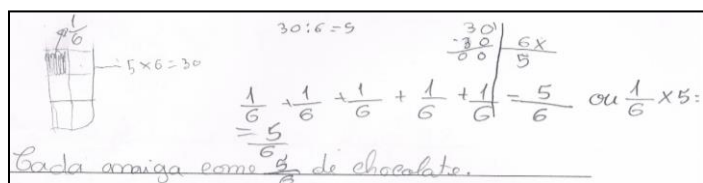 1/6
5 x 6 = 30
30 : 6 = 5
30 | 6 x
- 30 | 5
00
1/6 + 1/6 + 1/6 + 1/6 + 1/6 = 5/6 ou 1/6 x 5 =
= 5/6
Cada amiga come 5/6 de chocolate.